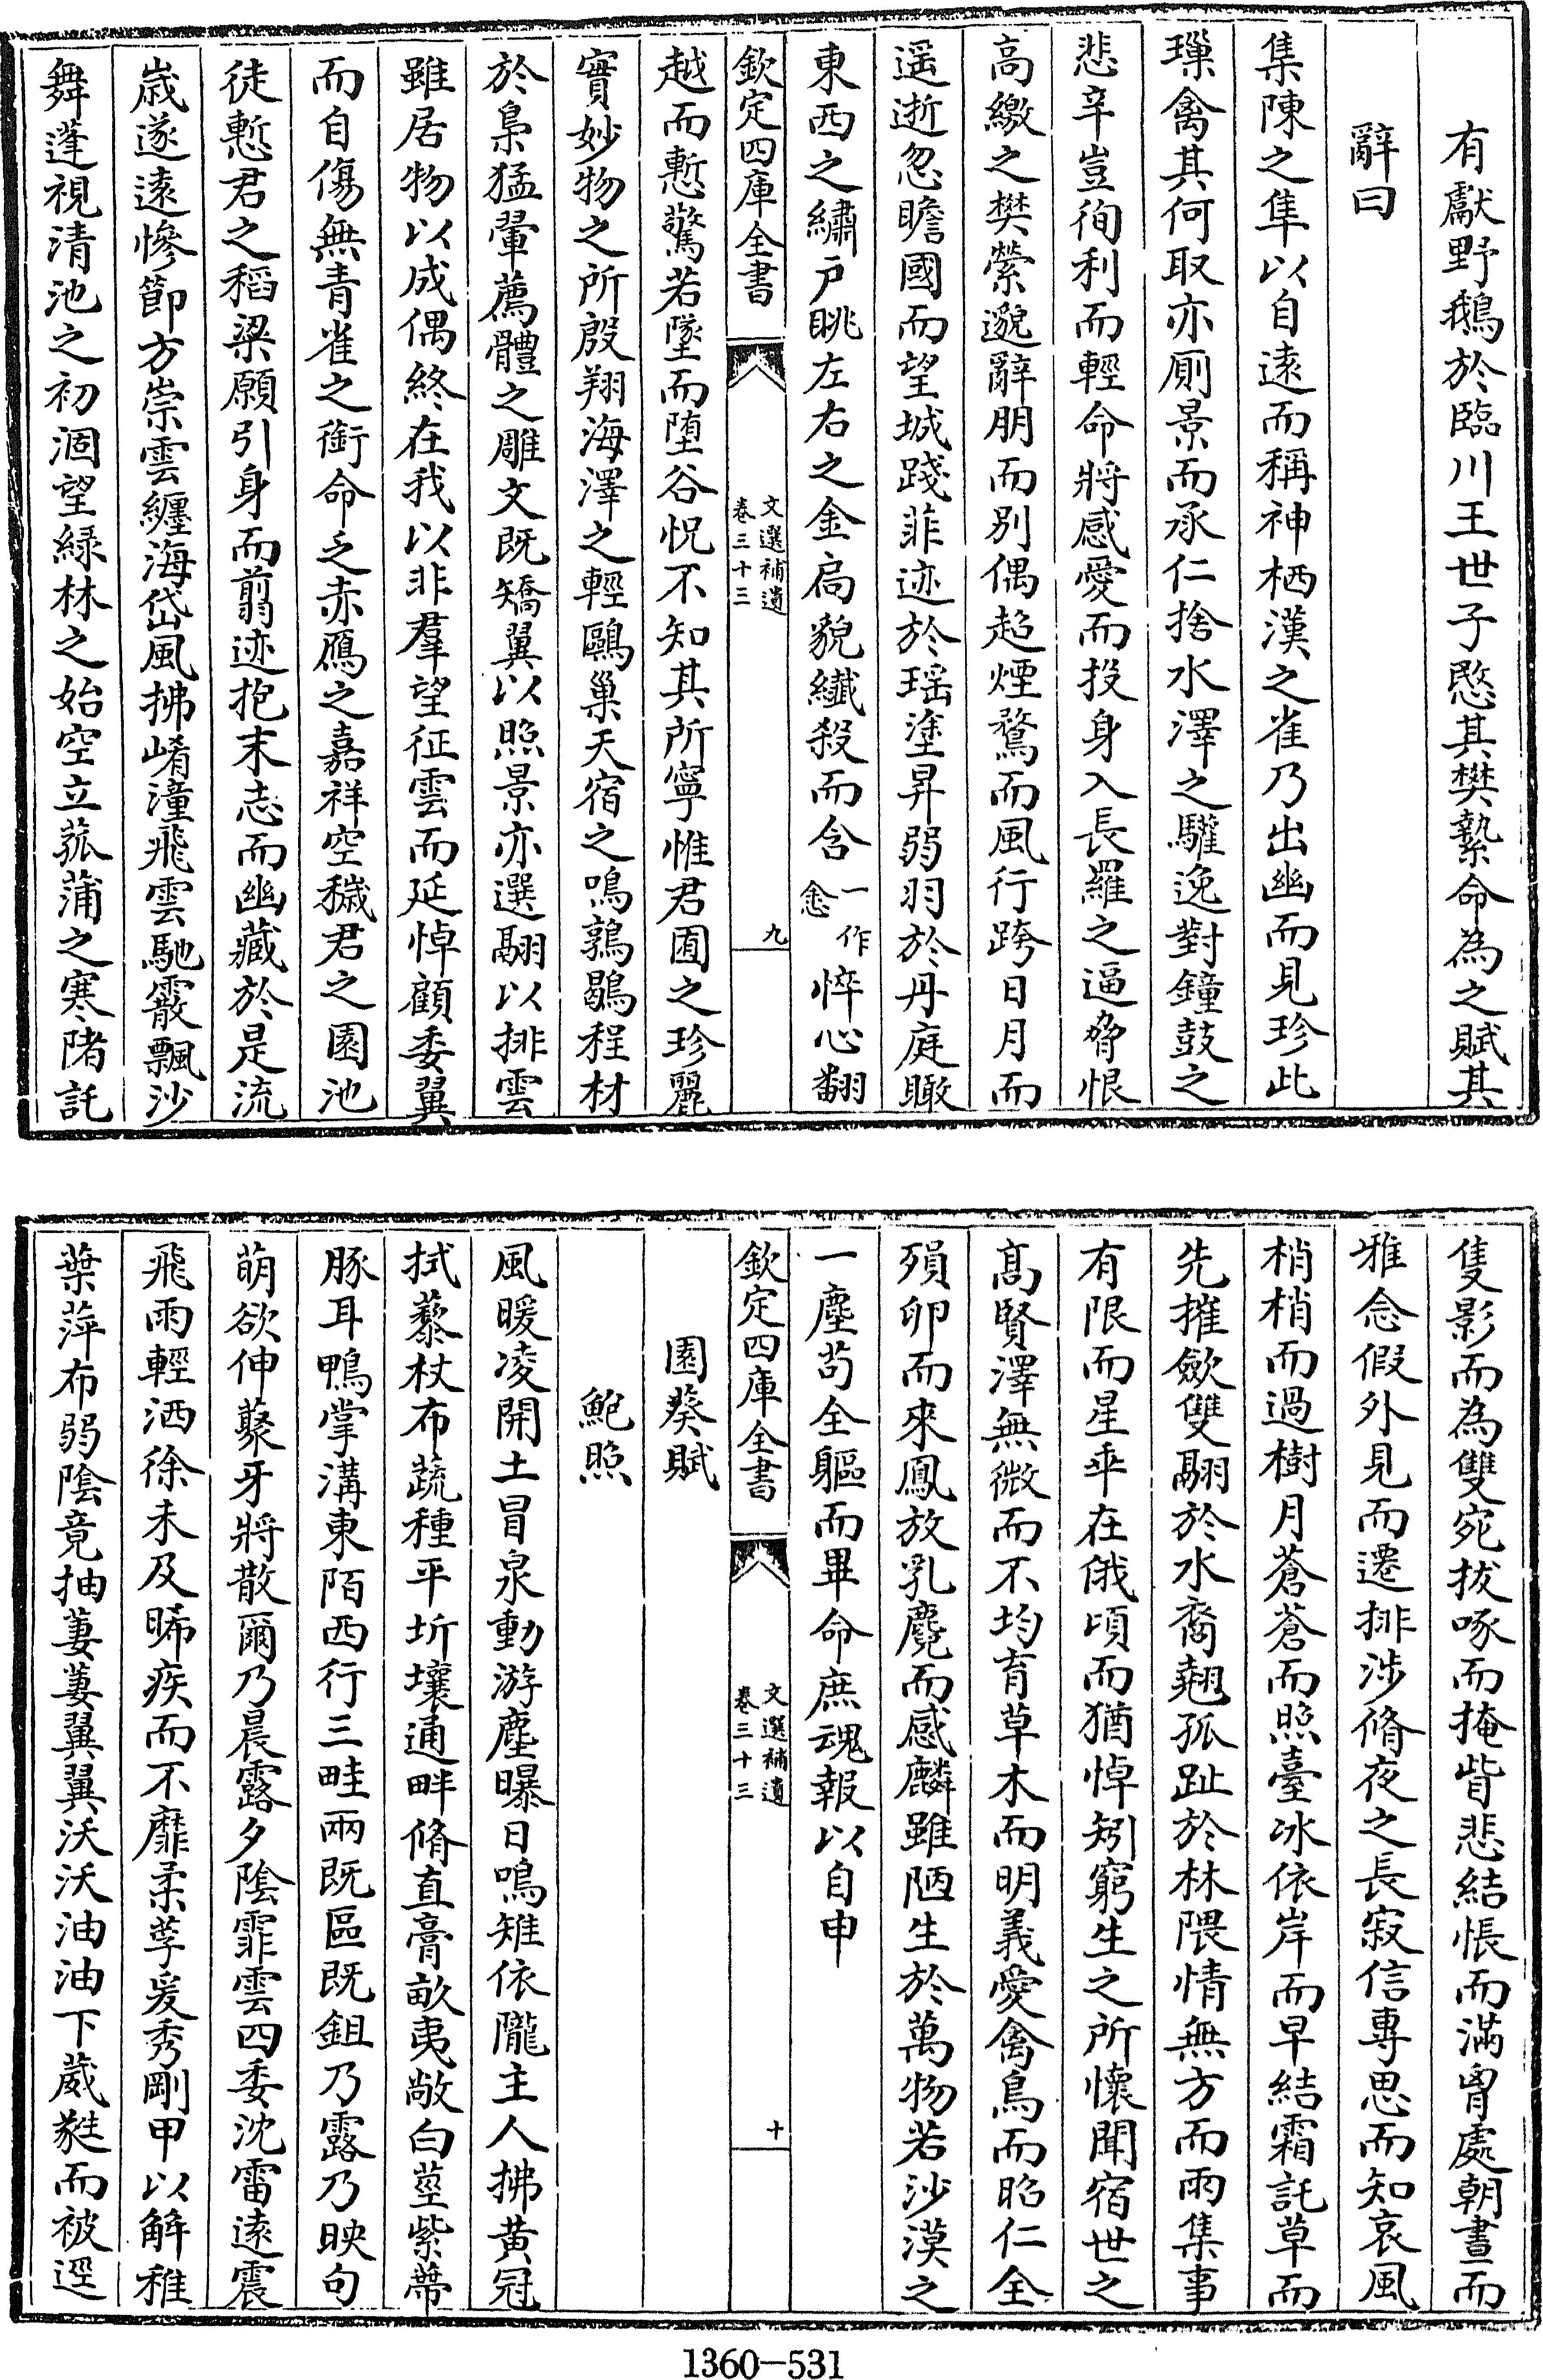 有獻野鵝於臨川王世子愍其樊縶命為之賦其
辭曰
集陳之隼以自遠而稱神栖漢之雀乃出幽而見珍此
璅禽其何取亦廁景而承仁捨水澤之驩逸對鐘鼓之
悲辛豈徇利而輕命將感愛而投身入長羅之逼脅恨
高繳之樊縈邈辭朋而別偶超煙騖而風行跨日月而
遥逝忽瞻國而望城踐菲迹於瑶塗昇弱羽於丹庭瞰
東西之繡戶眺左右之金扃貌纎殺而含一作悆悴心翻
欽定四庫全書
文選補遺
卷三十三
九
越而慙驚若墜而堕谷怳不知其所寧惟君囿之珍麗
實妙物之所殷翔海澤之輕鷗巢天宿之鳴鶉鶡程材
於梟猛翬薦體之雕文既矯翼以照景亦選翮以排雲
雖居物以成偶終在我以非羣望征雲而延悼顧委翼
而自傷無青雀之銜命乏赤鴈之嘉祥空穢君之園池
徒慙君之稻粱願引身而翦迹抱末志而幽藏於是流
歳遂遠慘節方崇雲纏海岱風拂崤潼飛雲馳霰飄沙
舞蓬視清池之初涸望緑林之始空立菰蒲之寒陼託
隻影而為雙宛拔啄而掩眥悲結悵而滿胷處朝晝而
雅念假外見而遷排涉脩夜之長寂信專思而知哀風
梢梢而過樹月蒼蒼而照臺冰依岸而早結霜託草而
先摧歛雙翮於水裔翹孤趾於林隈情無方而雨集事
有限而星乖在俄頃而猶悼矧窮生之所懷聞宿世之
髙賢澤無微而不均育草木而明義愛禽鳥而昭仁全
殞卵而來鳳放乳麑而感麟雖陋生於萬物若沙漠之
一塵苟全軀而畢命庶魂報以自申
欽定四庫全書
文選補遺
卷三十三
十
園葵賦
鮑照
風暖凌開土冒泉動游塵曝日鳴雉依隴主人拂黄冠
拭藜杖布蔬種平圻壤通畔脩直膏畝夷敞白莖紫蔕
豚耳鴨掌溝東陌西行三畦兩既區既鉏乃露乃映句
萌欲伸藂牙將散爾乃晨露夕陰霏雲四委沈雷遠震
飛雨輕洒徐未及晞疾而不靡柔莩爰秀剛甲以解稚
葉萍布弱陰竟抽萋萋翼翼沃沃油油下葳蕤而被逕
1360-531